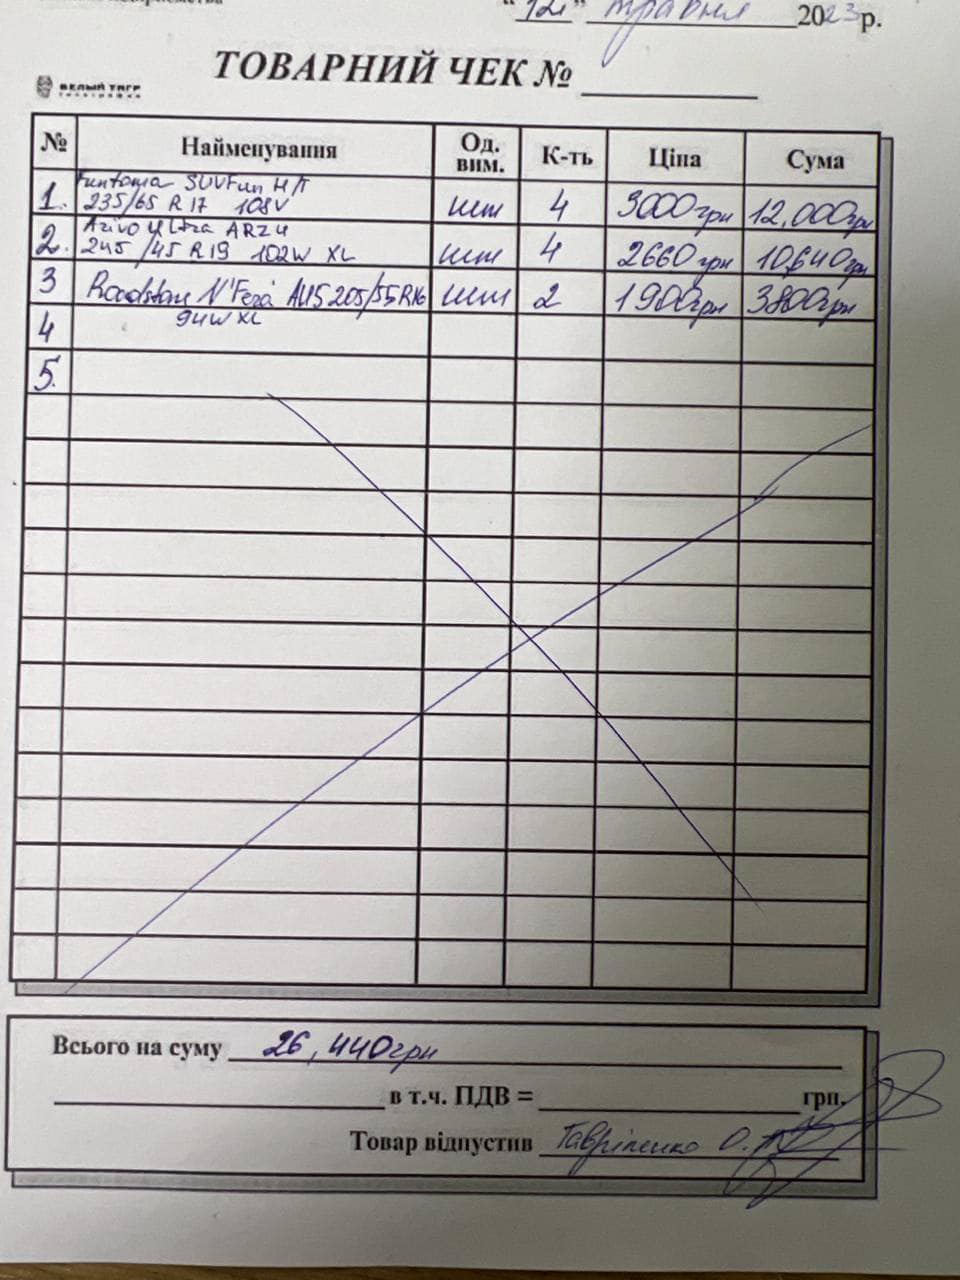 "12" травня 2023 р.
ТОВАРНИЙ ЧЕК №
БЕЛЫЙ ТИГР
№ Найменування Од. вим. К-ть Ціна Сума
1. Funtoma SUVFun H/T
235/65 R17 108V шт 4 3000грн 12,000грн
2. Azivo Ultra ARZ4
245/45 R19 102W XL шт 4 2660грн 10,640грн
3 Roadstone N'Fera AU5 205/55R16 шт 2 1900грн 3800грн
94W XL
4
5.
Всього на суму 26,440грн
в т.ч. ПДВ = грн.
Товар відпустив Гавріленко О.